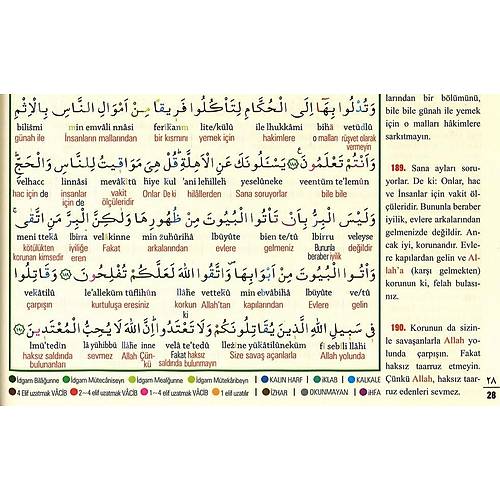 وَتُدْلُوا بِهَا اِلَى الْحُكَّامِ لِتَأْكُلُوا فَرِيقًا مِنْ اَمْوَالِ النَّاسِ بِالْاِثْمِ
bilismi min emvâli nnâsi ferîkam lite/kûlû ile lhukkâmi bihâ vetüdlû
günah ile İnsanların mallarından bir kısmını yemek için hakimlere o malları rüşvet olarak vermeyin
وَاَنْتُمْ تَعْلَمُونَ ﴿١٨٨﴾ يَسْئَلُونَكَ عَنِ الْاَهِلَّةِ قُلْ هِيَ مَوَاقِيتُ لِلنَّاسِ وَالْحَجِّ
velhacc linnâsi mevâkîtü hiye kul 'ani lehilleh yeselûneke veentüm te'lemûn
hac için de insanlar için de vakit ölçüleridir Onlar De ki hilâllerden soruyorlar bile bile
وَلَيْسَ الْبِرُّ بِاَنْ تَأْتُوا الْبُيُوتَ مِنْ ظُهُورِهَا وَلٰكِنَّ الْبِرَّ مَنِ اتَّقٰى
meni ttekâ lbirra velâkinne min zuhûrihâ lbüyûte bien te/tü lbirru veleyse
kötülükten korunan kimsedir iyiliğe eren Fakat arkalarından evlere gelmeniz Bununla beraber iyilik değildir
وَاْتُوا الْبُيُوتَ مِنْ اَبْوَابِهَا وَاتَّقُوا اللّٰهَ لَعَلَّكُمْ تُفْلِحُونَ ﴿١٨٩﴾ وَقَاتِلُوا
vekâtilû le'alleküm tüflihûn llâhe vettekû min ebvâbihâ lbüyûte ve/tû
çarpışın kurtuluşa eresiniz ki korkun Allah'tan kapılarından Evlere gelin
فِى سَبِيلِ اللّٰهِ الَّذِينَ يُقَاتِلُونَكُمْ وَلَا تَعْتَدُوا اِنَّ اللّٰهَ لَا يُحِبُّ الْمُعْتَدِينَ ﴿١٩٠﴾
lmu'tedîn lâ yühibbü llâhe inne velâ te'tedû llezîne yükâtilûneküm fî sebîli llâhi
haksız saldırıda bulunanları sevmez Allah Çünkü Fakat haksız saldırıda bulunmayın Size savaş açanlarla Allah yolunda
İdgam Bilâğunne İdgam Mütecâniseyn İdgam Mealğunne İdgam Mütekâribeyn KALIN HARF İKLAB KALKALE
4 Elif uzatmak VÂCİB 2~4 elif uzatmak VÂCİB 1~4 elif uzatmak VÂCİB 1 elif uzatılır İZHAR OKUNMAYAN İHFA
larından bir bölümünü,
bile bile günah ile yemek
için o malları hâkimlere
sarkıtmayın.
189. Sana ayları soru-
yorlar. De ki: Onlar, hac
ve İnsanlar için vakit öl-
çüleridir. Bununla beraber
iyilik, evlere arkalarından
gelmenizde değildir. An-
cak iyi, korunandır. Evle-
re kapılardan gelin ve Al-
lah'a (karşı gelmekten)
korunun ki, felah bulası-
nız.
190. Korunun da sizin-
le savaşanlarla Allah yo-
lunda çarpışın. Fakat
haksız taarruz etmeyin.
Çünkü Allah, haksız taar-
ruz edenleri sevmez.
٢٨
28